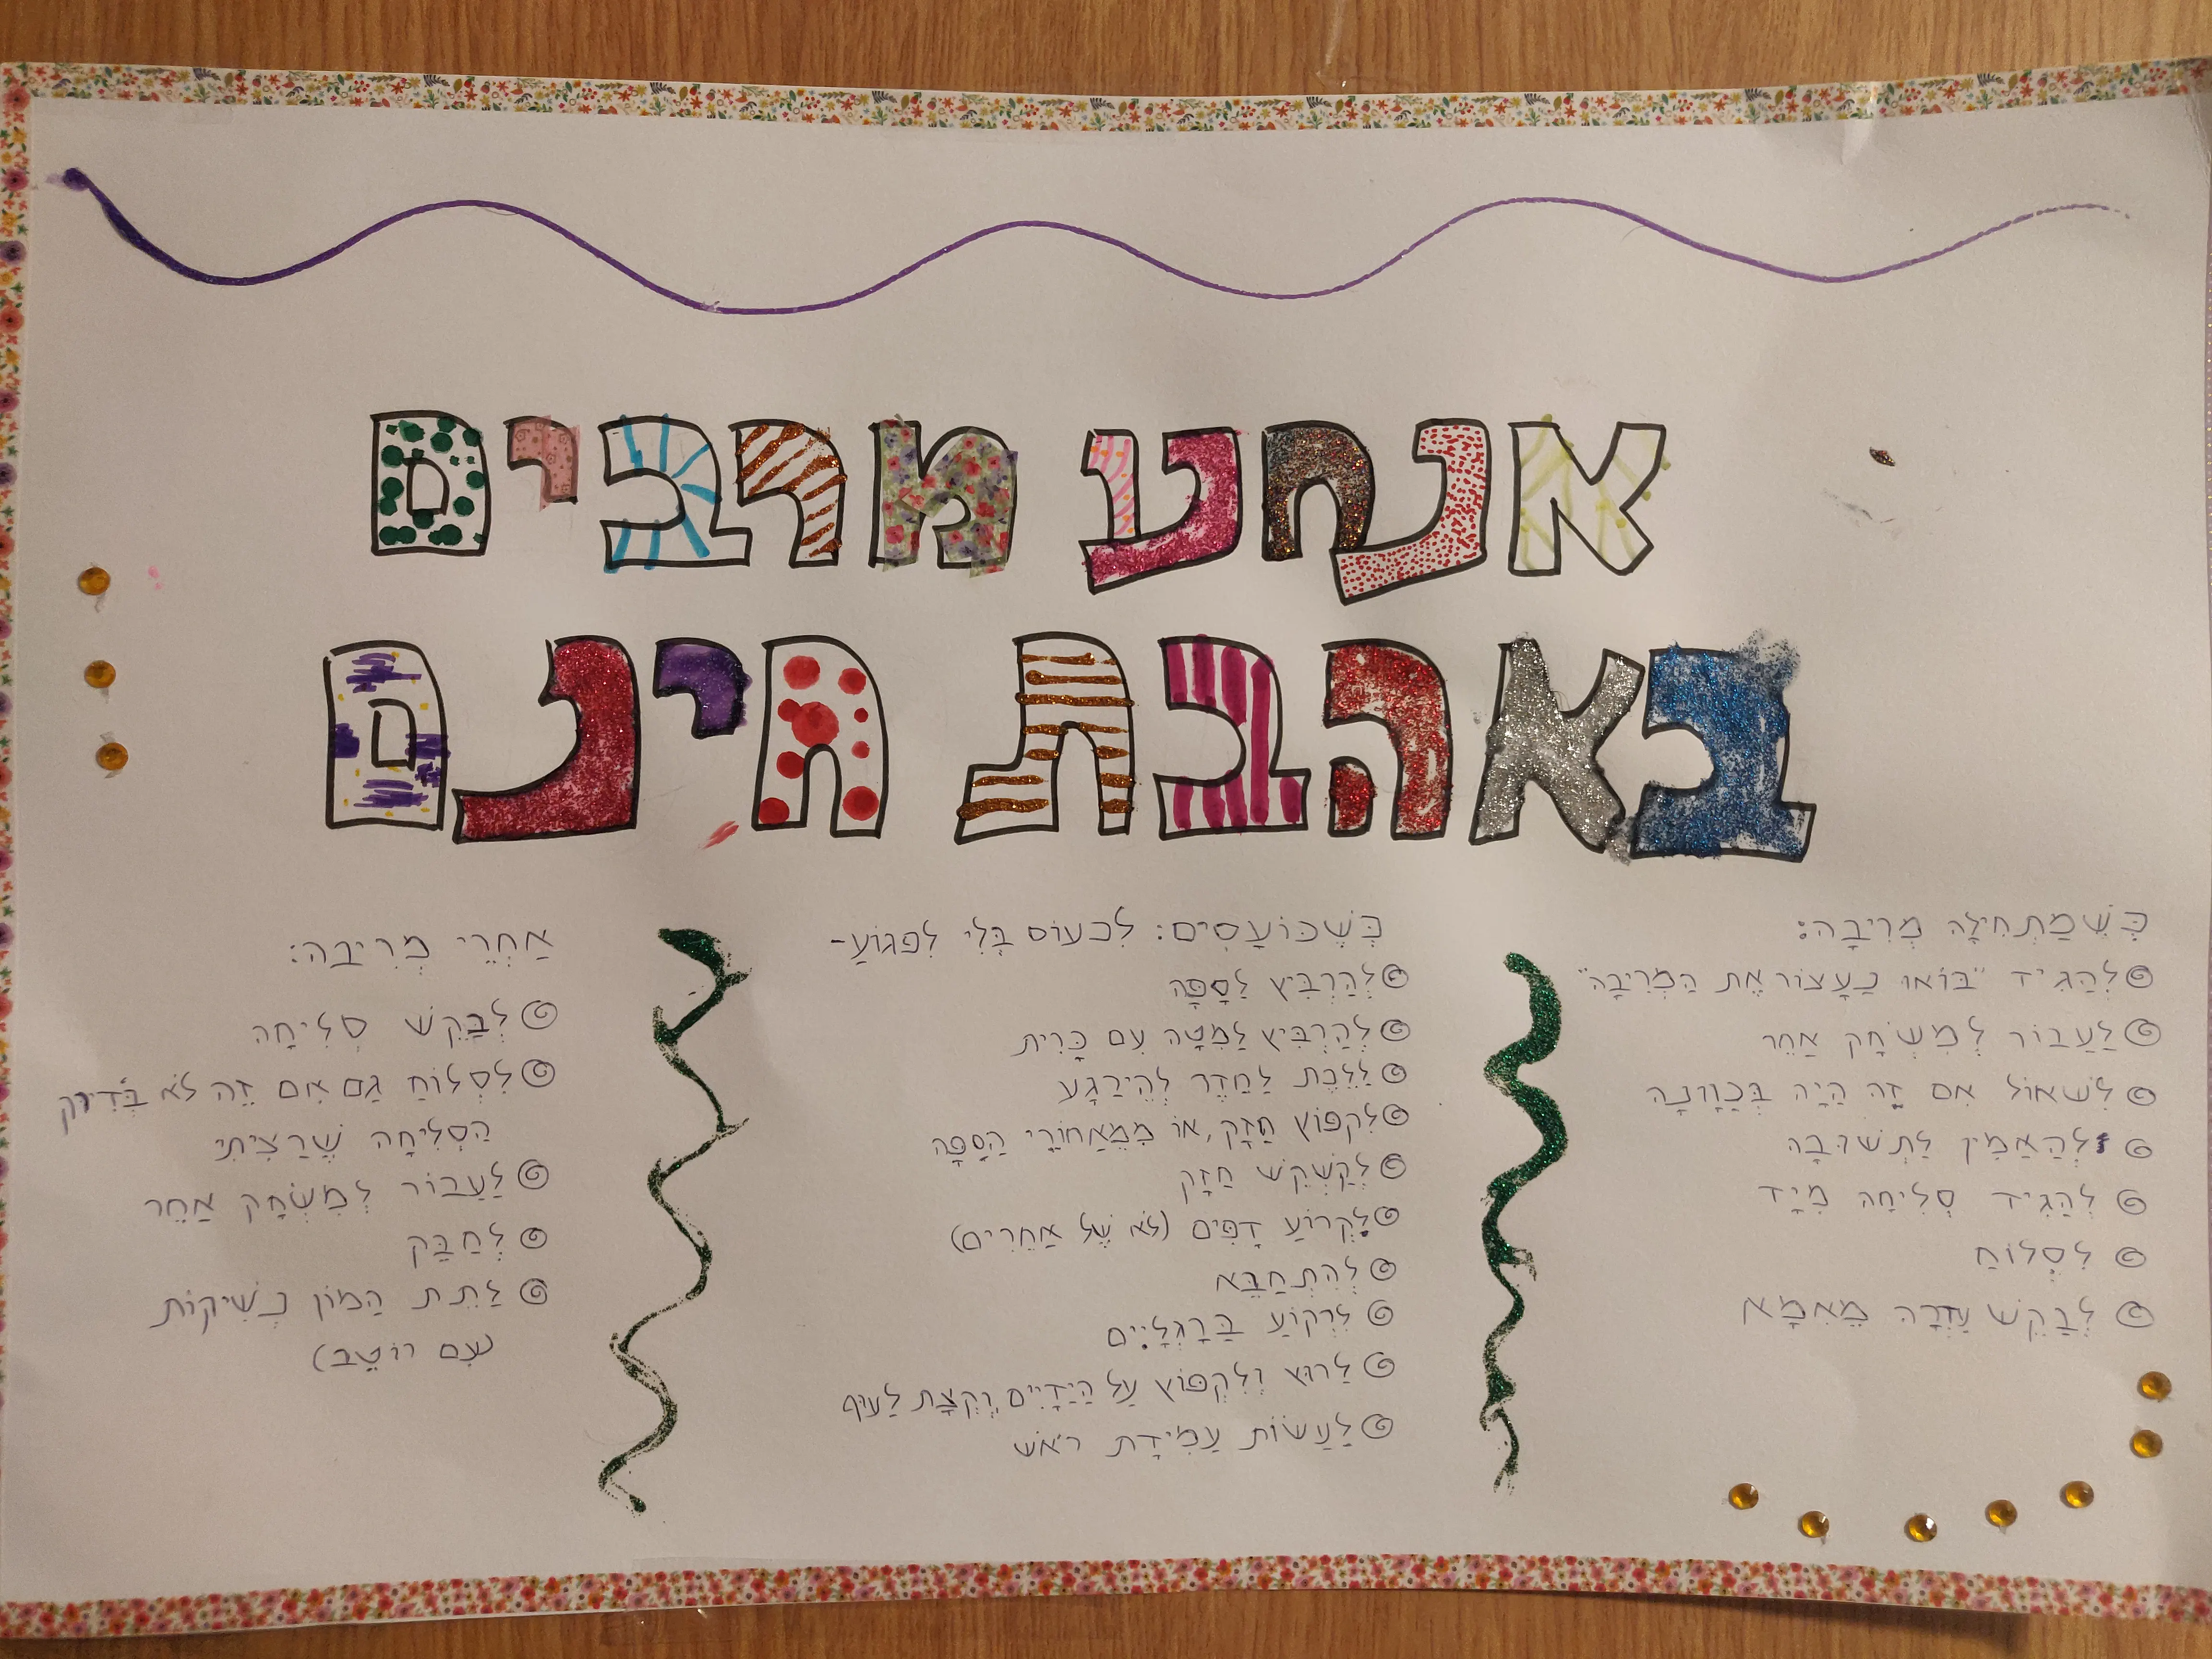 אנחנו מרבים
באהבת חינם
כְּשֶׁמַּתְחִילָה מְרִיבָה:
לְהַגִּיד "בּוֹאוּ נַעֲצוֹר אֶת הַמְּרִיבָה"
לַעֲבוֹר לְמִשְׂחָק אַחֵר
לִשְׁאוֹל אִם זֶה הָיָה בְּכַוָּונָה
לְהַאֲמִין לַתְּשׁוּבָה
לְהַגִּיד סְלִיחָה מִיָּד
לִסְלוֹחַ
לְבַקֵּשׁ עֶזְרָה מֵאִמָּא
כְּשֶׁכּוֹעֲסִים: לִכְעוֹס בְּלִי לִפְגּוֹעַ-
לְהַרְבִּיץ לַסַּפָּה
לְהַרְבִּיץ לַמִּטָּה עִם כָּרִית
לָלֶכֶת לַחֶדֶר לְהֵירָגַע
לִקְפּוֹץ חָזָק, אוֹ מִמֵּאֲחוֹרֵי הַסַּפָּה
לְקַשְׁקֵשׁ חָזָק
לִקְרוֹעַ דַּפִּים (לֹא שֶׁל אֲחֵרִים)
לְהִתְחַבֵּא
לִרְקוֹעַ בָּרַגְלַיִים
לָרוּץ וְלִקְפּוֹץ עַל הַיָּדַיִים, וְקְצָת לָעוּף
לַעֲשׂוֹת עֲמִידַת רֹאשׁ
אַחֲרֵי מְרִיבָה:
לְבַקֵּשׁ סְלִיחָה
לִסְלוֹחַ גַּם אִם זֶה לֹא בְּדִיּוּק
הַסְּלִיחָה שֶׁרָצִיתִי
לַעֲבוֹר לְמִשְׂחָק אַחֵר
לְחַבֵּק
לָתֵת הָמוֹן נְשִׁיקוֹת
(עִם רוֹטֶב)